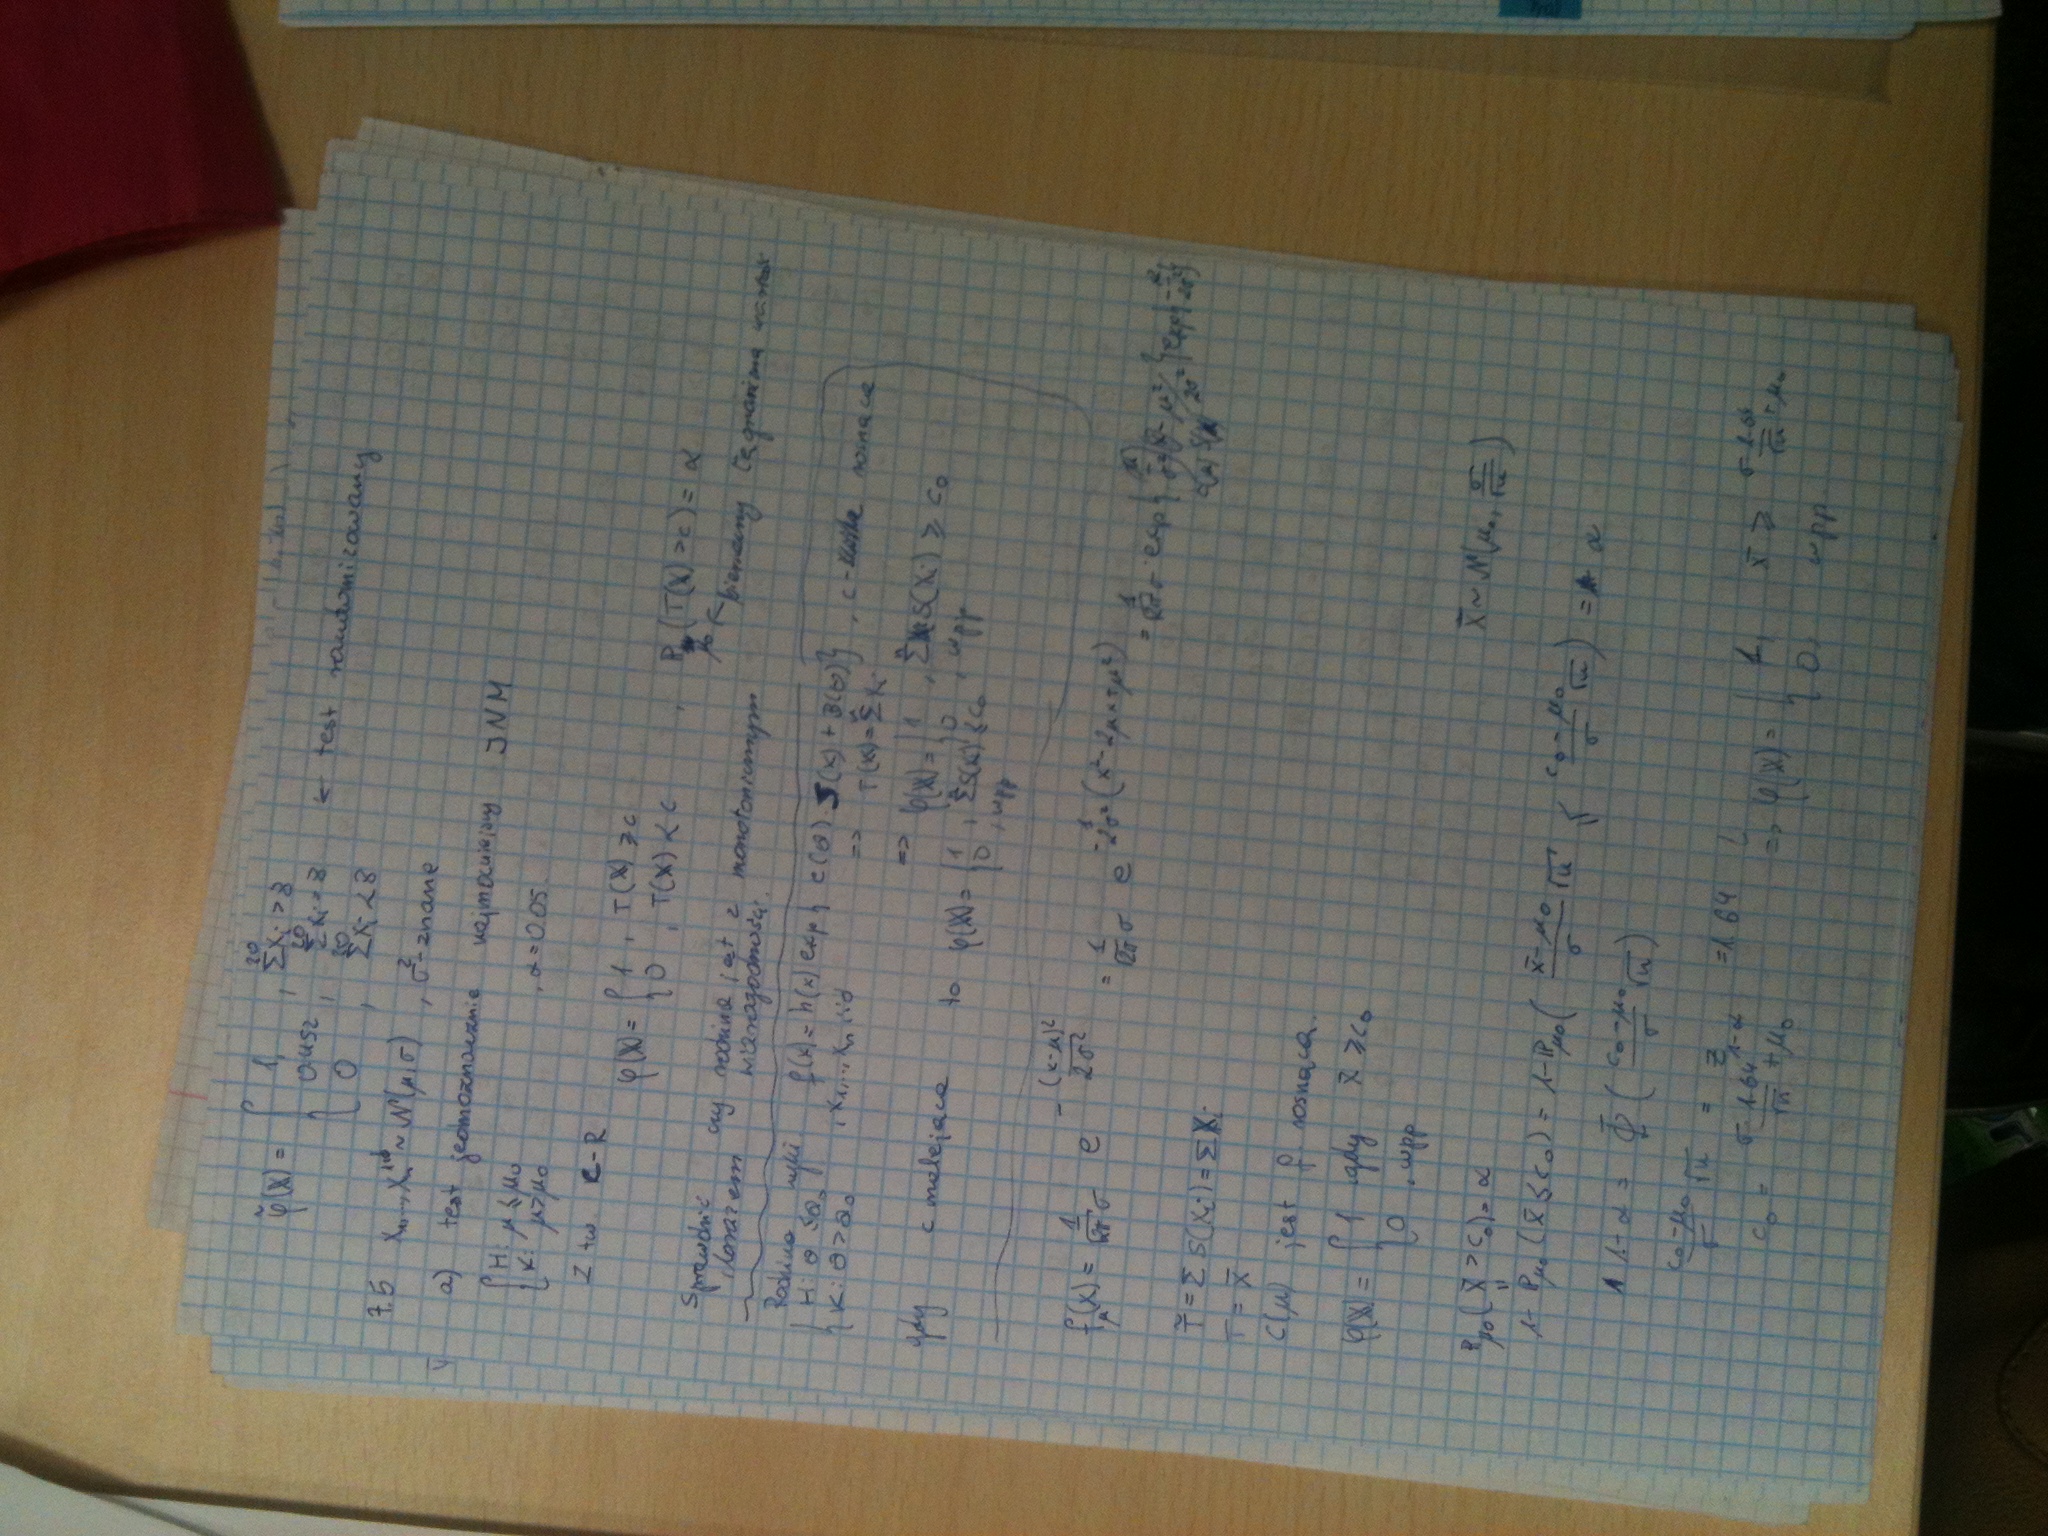 φ̃(X) = { 1, , Σ²⁰Xᵢ > 8
0.452 , Σ²⁰Xᵢ = 8 ← test randomizowany
0 , Σ²⁰Xᵢ < 8
7.5 X₁,...,Xₙ iid ~ N(μ,σ) , σ²-znane
a) test jednoznacznie najmocniejszy JNM
{ H: μ ≤ μ₀
K: μ > μ₀ , α = 0.05.
Z tw. C-R
φ(X) = { 1 , T(X) ≥ c
0 , T(X) < c , P_μ₀(T(X) > c) = α
↖ bierzemy tę graniczną wartość
Sprawdzić czy rodzina jest z monotonicznym
ilorazem wiarogodności.
Rodzina f(x) = h(x) exp{ c(θ)·S(x) + B(θ)} , c- rosnąca
{ H: θ ≤ θ₀
K: θ > θ₀ , X₁,...,Xₙ iid => T(X) = ΣXᵢ
=> φ(X) = { 1 , ΣS(Xᵢ) ≥ c₀
0 , wpp
gdy c malejąca to φ(X) = { 1 , ΣS(Xᵢ) ≤ c₀
0 , wpp
f_μ(x) = 1/(√2π σ) e^(-(x-μ)²/2σ²) = 1/(√2π σ) e^(-1/2σ² (x²-2μx+μ²)) = 1/(√2π σ) exp{ μ/σ² x - μ²/2σ² } exp{-x²/2σ²}
C(μ) S(x)
T̃ = ΣS(Xᵢ) = ΣXᵢ
T = X̄
C(μ) jest f. rosnącą.
φ(X) = { 1 gdy X̄ ≥ c₀
0 , wpp
P_μ₀( X̄ > c₀) = α X̄ ~ N(μ₀, σ/√n)
"
1 - P_μ₀(X̄ ≤ c₀) = 1 - P_μ₀( (X̄-μ₀)/σ √n ≤ (c₀-μ₀)/σ √n ) = α
1-α = Φ( (c₀-μ₀)/σ √n )
(c₀-μ₀)/σ √n = z_1-α = 1.64
c₀ = σ·1.64/√n + μ₀ => φ(X) = { 1, X̄ ≥ σ·1.64/√n + μ₀
0, wpp.